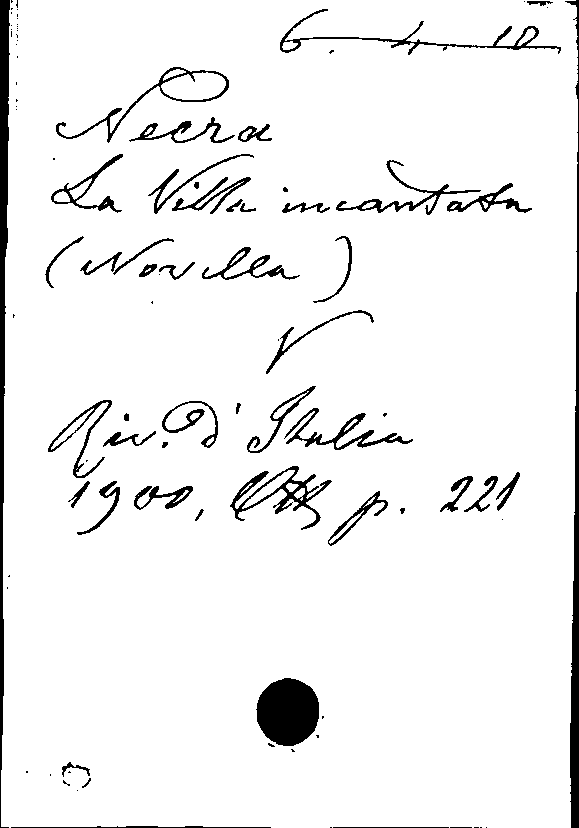 6. 4. 10
Neera
La Villa incantata
(Novella)
V
Riv. d'Italia
1900, Ott p. 221